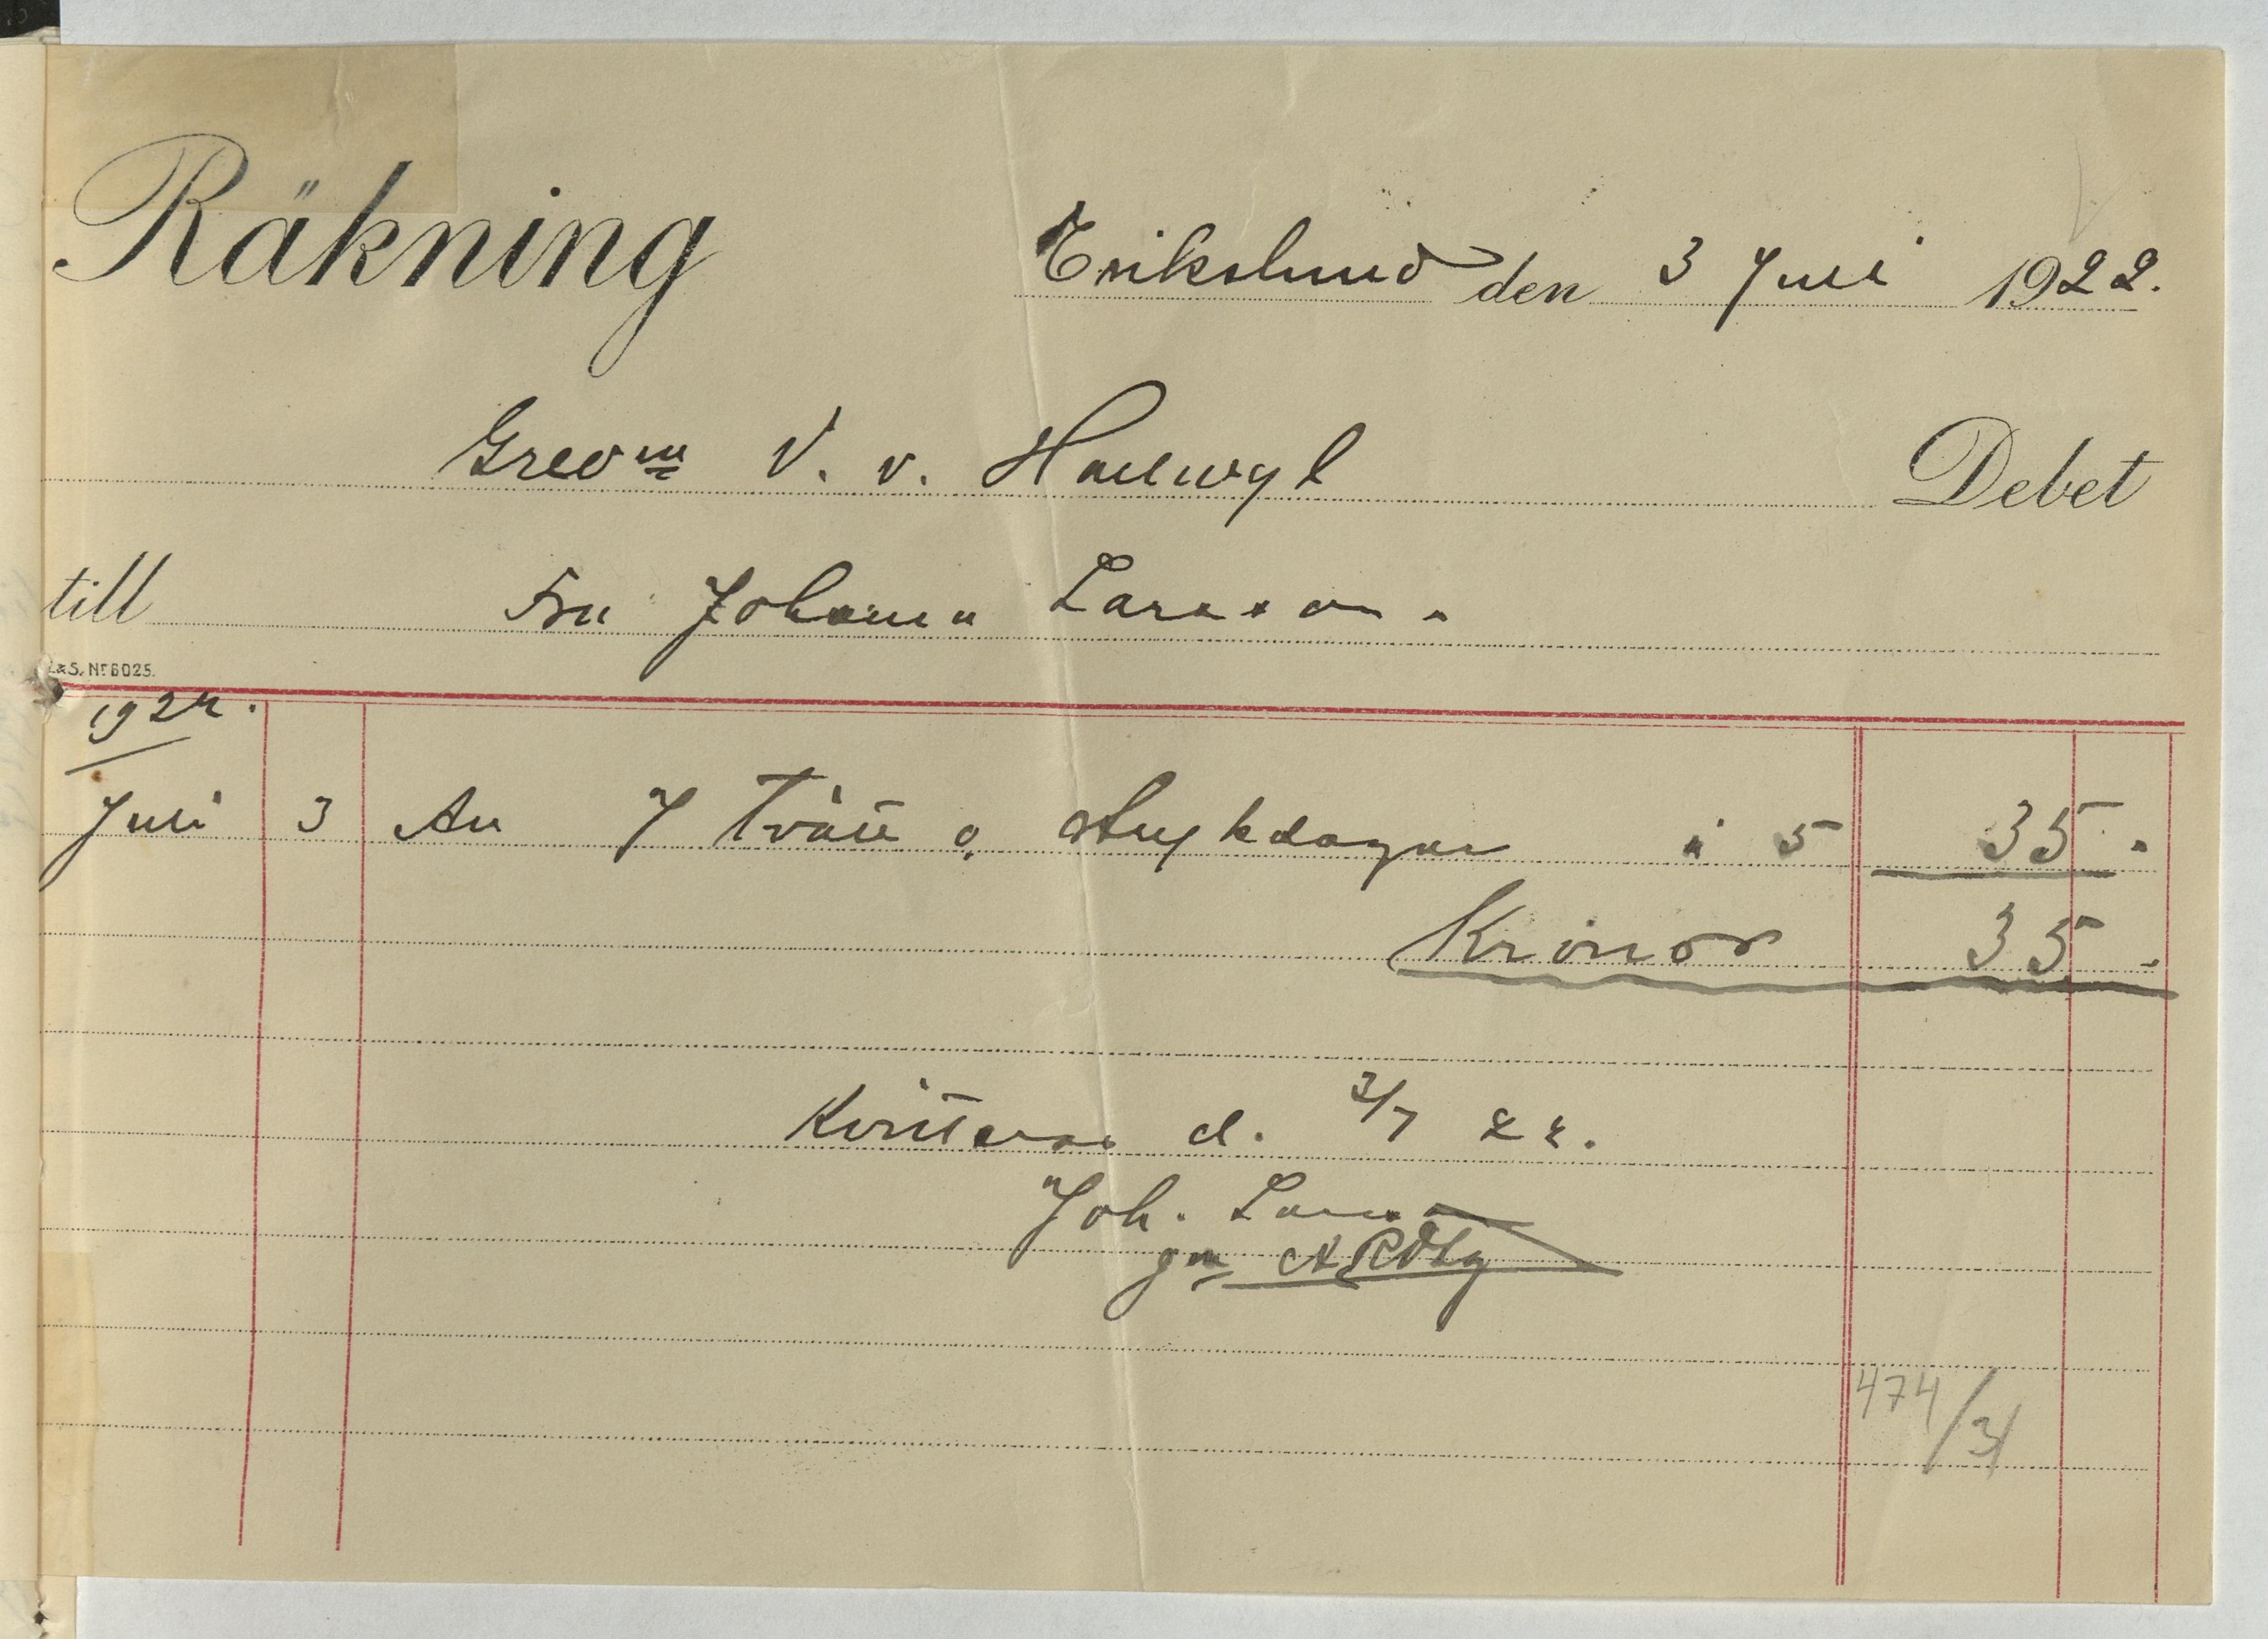 Räkning
Erikslund den 3 Juli 1922.
Grevm V. v. Hallwyl Debet
till Fru Johanna Larsson.
L&S. Nr 6025.
1922.
Juli 3 An 7 Tvätt o. strykdagar à 5 35 -
Kronor 35 -
Kvitteras d. 3/7 22.
Joh. Larsson
gm
474/31